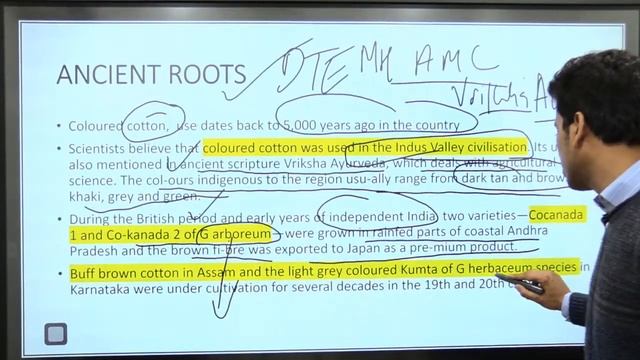 ANCIENT ROOTS
DTE MH AMC
Vriksha
Coloured cotton, use dates back to 5,000 years ago in the country
Scientists believe that coloured cotton was used in the Indus Valley civilisation. Its u
also mentioned in ancient scripture Vriksha Ayurveda, which deals with agricultural
science. The col-ours indigenous to the region usu-ally range from dark tan and brow
khaki, grey and green.
During the British period and early years of independent India, two varieties—Cocanada
1 and Co-kanada 2 of G arboreum—were grown in rainfed parts of coastal Andhra
Pradesh and the brown fi-bre was exported to Japan as a pre-mium product.
Buff brown cotton in Assam and the light grey coloured Kumta of G herbaceum species in
Karnataka were under cultivation for several decades in the 19th and 20th